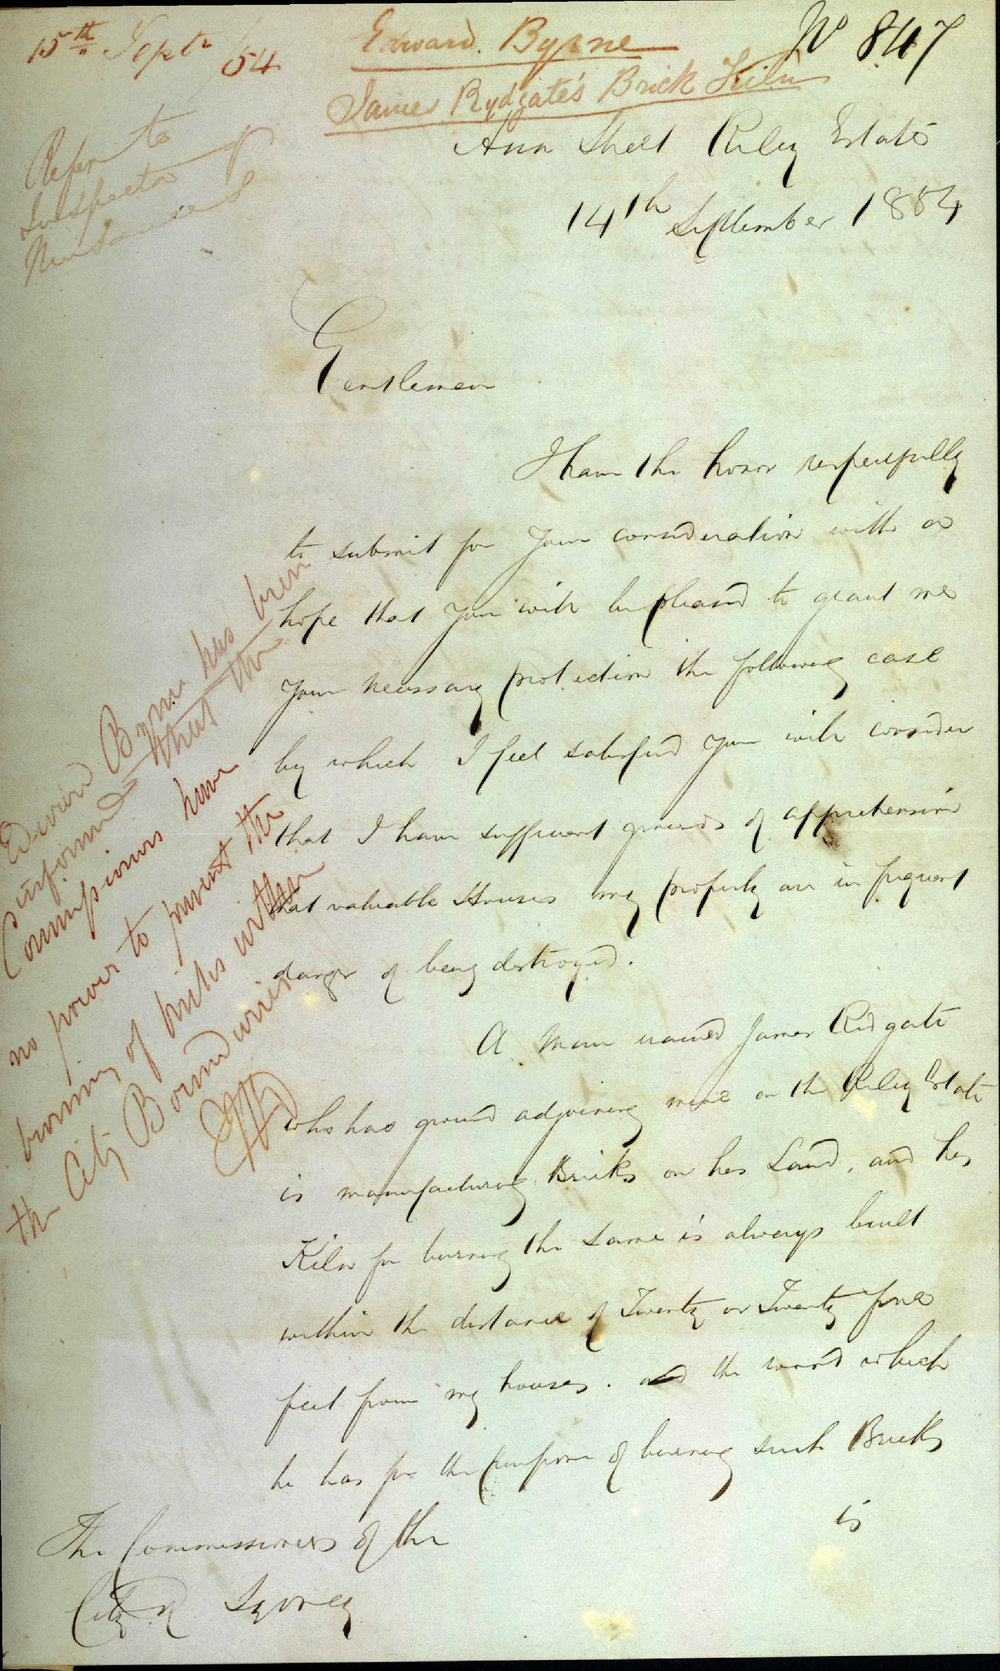 15th Septr /54
Edward Byrne
No 847
James Rydgate's Brick Kiln
Refer to
Inspector of
Nuisances
Ann Street Riley Estate
14th September 1854
Gentlemen
I have the honor respectfully
to submit for your consideration with a
hope that you will be pleased to grant me
your necessary protection the following case
by which I feel satisfied you will consider
that I have sufficient grounds of apprehension
that valuable Houses my property are in frequent
danger of being destroyed.
A Man named James Ridgate
who has ground adjoining mine on the Riley Estate
is manufacturing Bricks on his Land, and his
Kiln for burning the same is always built
within the distance of Twenty or Twenty five
feet from my houses. and the wood which
he has for the purpose of burning such Bricks
is
The Commissioners of the
City of Sydney
Edward Byrne has been
informed that the
Commissioners have
no power to prevent the
burning of bricks within
the City Boundaries